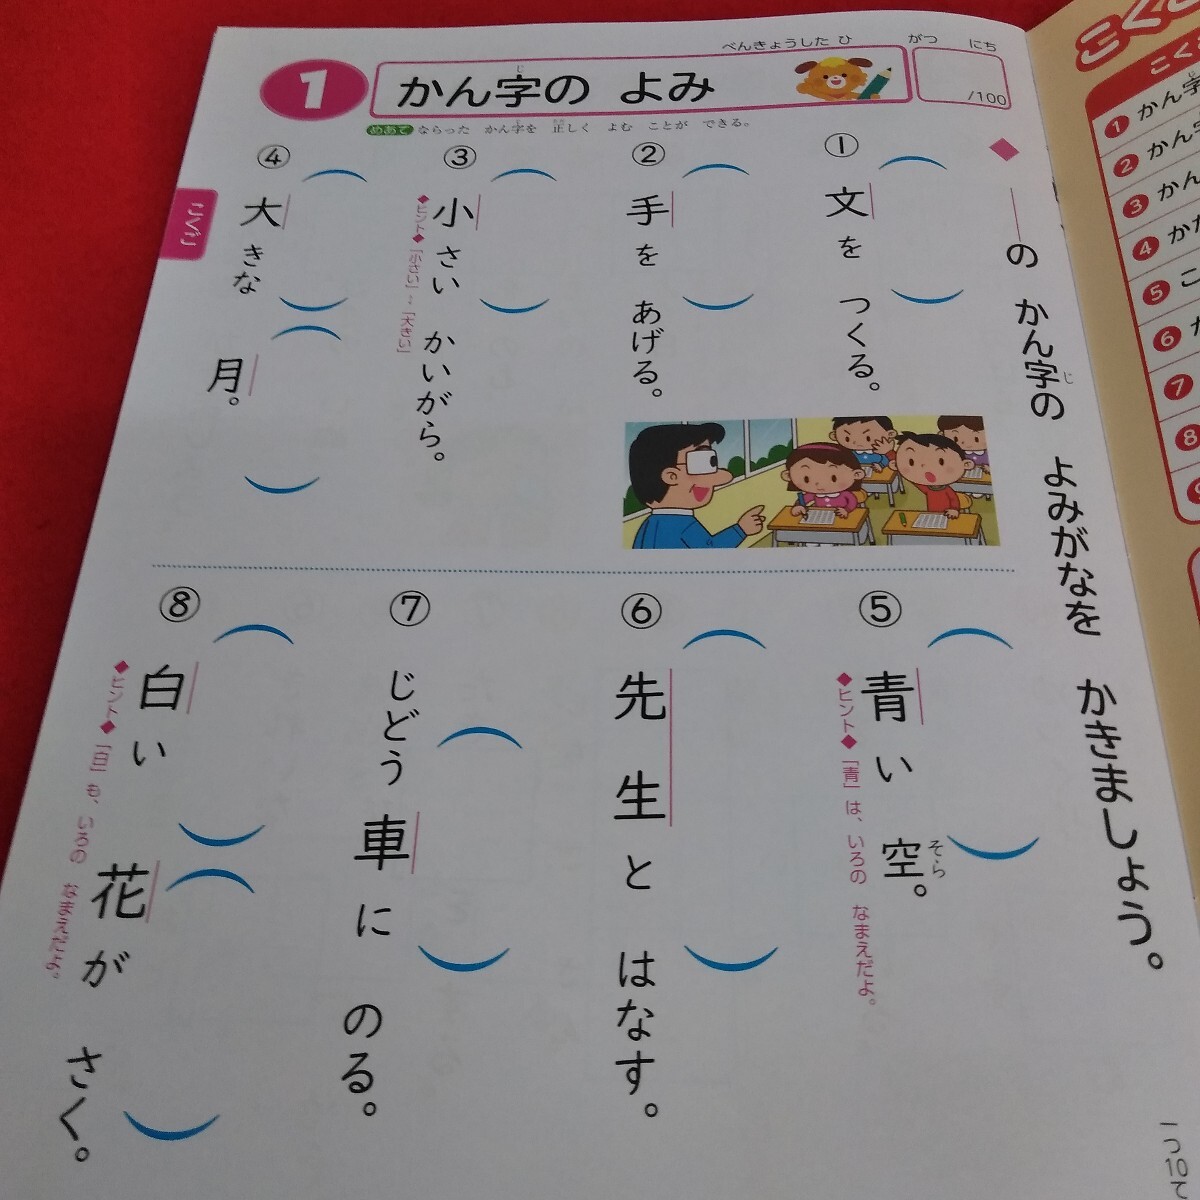 べんきょうした ひ　がつ　にち
1
かん字の よみ
じ
/100
めあて ならった かん字を 正しく よむ ことが できる。
こくご
◆――の かん字の よみがなを かきましょう。
じ
① 文を つくる。
② 手を あげる。
③ 小さい かいがら。
◆ヒント◆「小さい」↔「大きい」
④ 大きな 月。
⑤ 青い 空。
そら
◆ヒント◆「青」は、いろの なまえだよ。
⑥ 先生と はなす。
⑦ じどう車に のる。
⑧ 白い 花が さく。
◆ヒント◆「白」も、いろの なまえだよ。
一つ10て
こくご
こく
1 かん字
2 かん字
3 かん
4 かた
5 こ
6
7
8
9